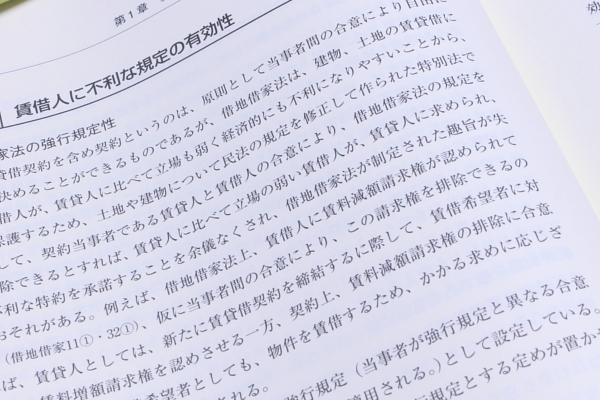 第1章
賃借人に不利な規定の有効性
家法の強行規定性
貸借契約を含め契約というのは、原則として当事者間の合意により自由に
決めることができるものであるが、借地借家法は、建物、土地の賃貸借に
借人が、賃貸人に比べて立場も弱く経済的にも不利になりやすいことから、
保護するため、土地や建物について民法の規定を修正して作られた特別法で
して、契約当事者である賃貸人と賃借人の合意により、借地借家法の規定を
除できるとすれば、賃貸人に比べて立場の弱い賃借人が、賃貸人に求められ、
不利な特約を承諾することを余儀なくされ、借地借家法が制定された趣旨が失
おそれがある。例えば、借地借家法上、賃借人に賃料減額請求権が認められて
(借地借家11①・32①)、仮に当事者間の合意により、この請求権を排除できるの
ば、賃貸人としては、新たに賃貸借契約を締結するに際して、賃借希望者に対
賃料増額請求権を認めさせる一方、契約上、賃料減額請求権の排除に合意
希望者としても、物件を賃借するため、かかる求めに応じざ
される。
強行規定(当事者が強行規定と異なる合意
適用される。)として設定している。
行規定とする定めが置か
効